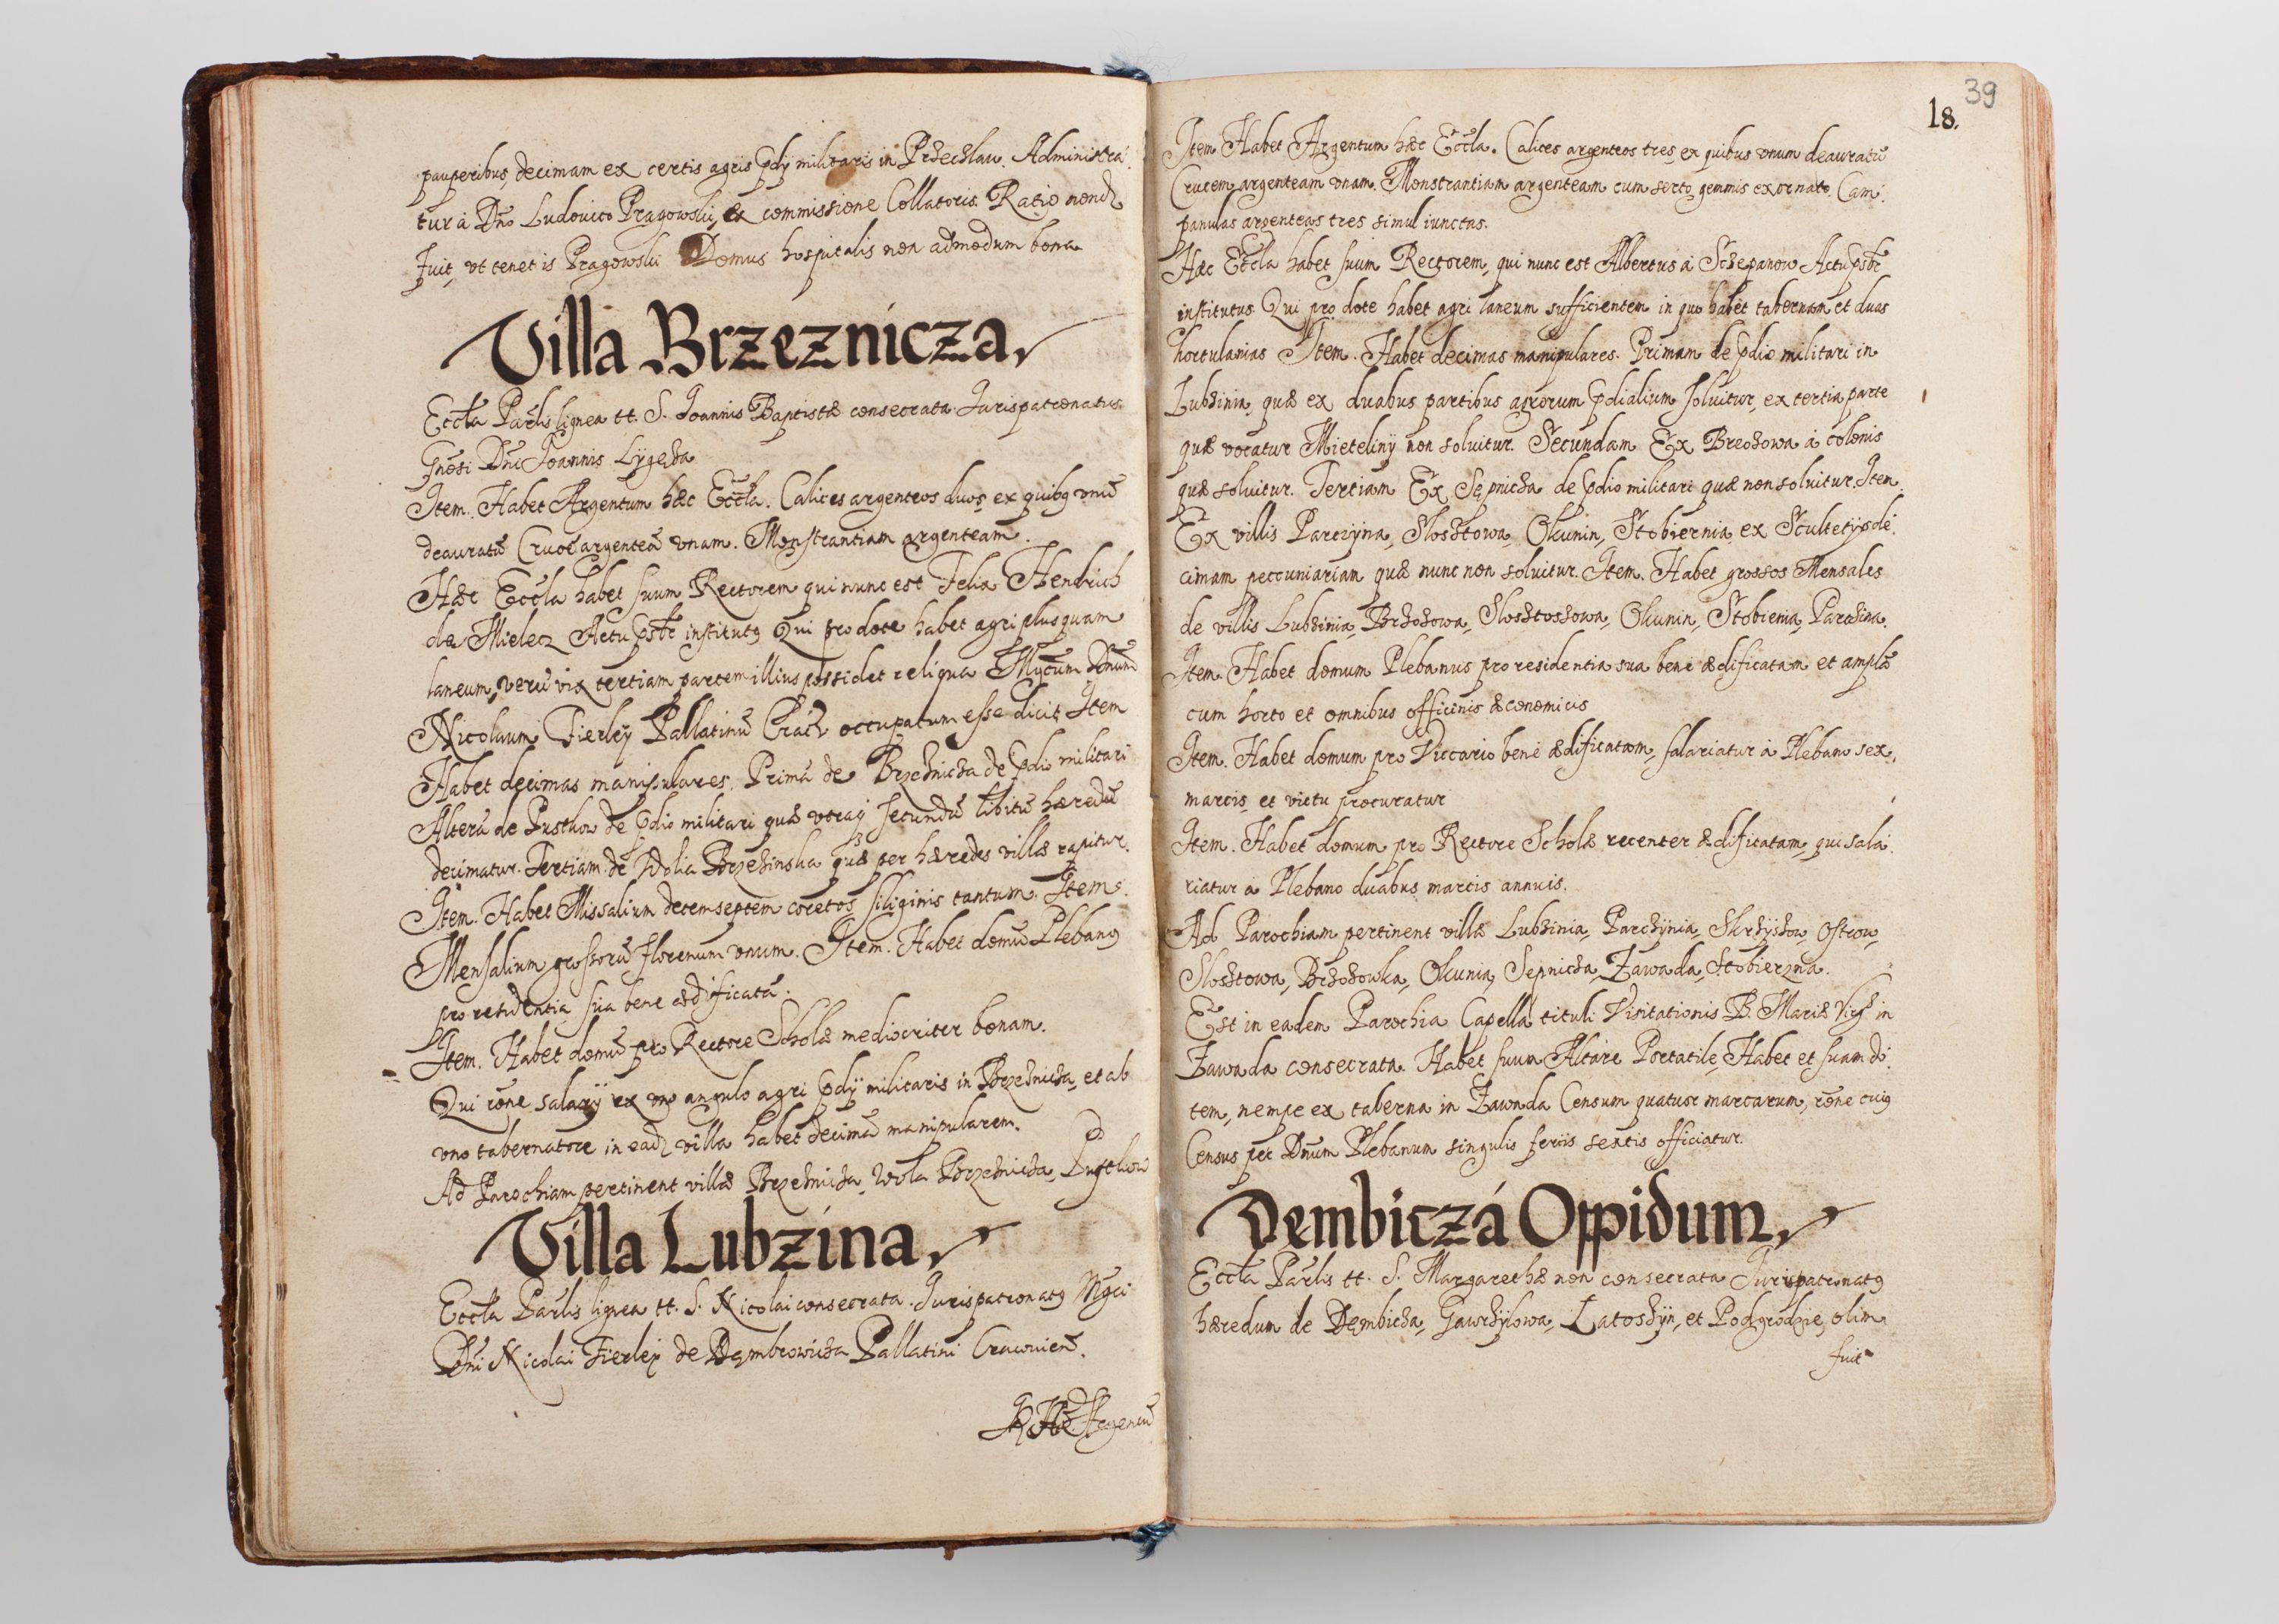 pauperibus, decimam ex certis agris p̃dij militaris in Przeczlaw. Administra:
tur à Dño Ludovico Pragowski, ex commissione Collatoris. Ratio nondũ
fuit, vt tenet is Pragowski Domus hospitalis non admodum bona
Villa Brzeznicza
Eccła Parlis lignea tt. S. Joannis Baptistæ consecrata Jurispatronatus
Gñosi Dñi Joannis Lygęza
Item. Habet Argentum hæc Eccła. Calices argenteos duos, ex quibg vnũ
deauratũ Crucẽ argenteã vnam. Monstrantiam argenteam.
Hæc Eccła habet suum Rectorem qui nunc est Felix Hendrich
de Mielecz Actu p̃sbr institutg Qui pro dote habet agri plusquam
laneum, verũ vix tertiam partem illius possidet reliqua Mgcum Dñum
Nicolaum Fierley Pallatinũ Crac̃ occupatum esse dicit Item
Habet decimas manipulares. Primã de Brzeznicza de p̃dio militari
Alterã de Pustkow de p̃dio militari quæ secundũ libitũ hæredũ
decimatur. Tertiam de Wolia Brzezinska quæ per hæredes villæ rapitur.
Item. Habet Missalium decemseptem coretos siliginis tantum. Item.
Mensalium grossorũ florenum vnum. Item. Habet domũ Plebang
pro residentia sua bene ædificatã.
Item. Habet domũ pro Rectore Scholæ mediocriter bonam.
Qui rõne salarij ex vno angulo agri p̃dij militaris in Brzeznicza, et ab
vno tabernatore in eadẽ villa habet decimã manipularem.
Ad Parochiam pertinent villæ Brzeznicza, Wola Brzeznicza, Pustkow
Villa Lubzina
Eccła Parlis lignea tt. S. Nicolai consecrata. Jurispatronatg Mgci
Dñi Nicolai Fierley de Dąmbrowicza Pallatini Cracovieñ.
Argentũ
39
18.
Item Habet Argentum hæc Eccła. Calices argenteos tres, ex quibus vnum deauratũ
Crucem argenteam vnam. Monstrantiam argenteam cum serto gemmis exornato. Cam:
panulas argenteas tres simul iunctas.
Hæc Eccła habet suum Rectorem, qui nunc est Albertus à Sczepanow Actu p̃sbr
institutus Qui pro dote habet agri laneum sufficientem in quo habet tabernam et duas
hortulanias Item. Habet decimas manipulares. Primam de p̃dio militari in
Lubzinia, quæ ex duabus partibus agrorum p̃dialium soluitur, ex tertia parte
quæ vocatur Mieteliny non soluitur. Secundam Ex Breozowa à colonis
quæ soluitur. Tertiam Ex Sępnicza de p̃dio militari quæ non soluitur. Item.
Ex villis Parczyna, Slosztowa, Okunin, Stobiernia, ex Scultetijs de:
cimam peccuniariam quæ nunc non soluitur. Item. Habet grossos Mensales
de villis Lubzinia, Brzozowa, Slosztoszowa, Okunin, Stobienia, Parczina.
Item. Habet domum Plebanus pro residentia sua bene ædificatam et amplã
cum horto et omnibus officinis æconomicis
Item. Habet domum pro Viccario benè ædificatam, salariatur à Plebano sex,
marcis, et victu procuratur
Item. Habet domum pro Rectore Scholæ recenter ædificatam, qui sala:
riatur a Plebano duabus marcis annuis.
Ad Parochiam pertinent villæ Lubzinia, Parczynia, Skrzyszow, Ostrow,
Slosztowa, Brzozowka, Okunia, Sepnicza, Zawada, Stobierzna.
Est in eadem Parochia Capella tituli Visitationis B. Mariæ Virg̃ in
Zawada consecrata. Habet suum Altare Portatile, Habet et suam do:
tem, nempe ex taberna in Zawada Censum quatuor marcarum, rõne cuig
Census per Dñum Plebanum singulis feriis sextis officiatur.
Dembiczá Oppidum
Eccła Parlis tt. S. Margarethæ non consecrata Jurispatronatg
hæredum de Dęmbicza, Gawrzylowa, Latoszyn, et Podgrodzie, olim
fuit